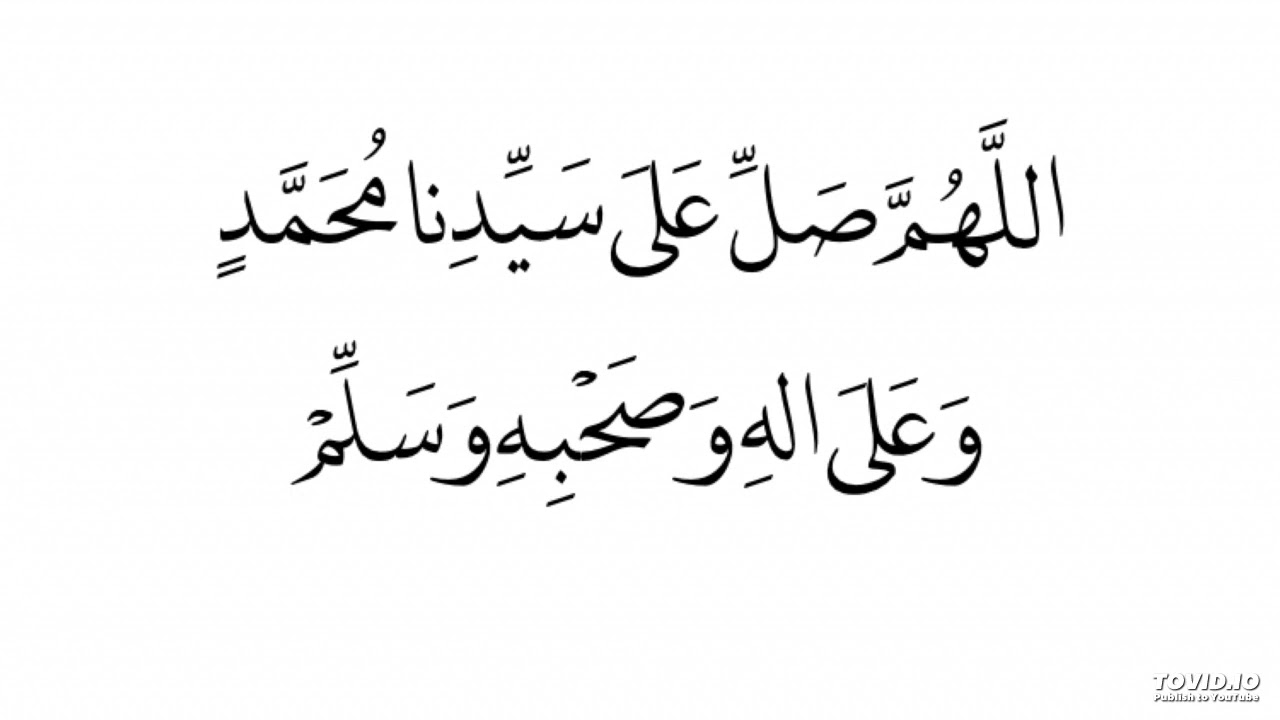 اللَّهُمَّ صَلِّ عَلَى سَيِّدِنا مُحَمَّدٍ
وَعَلَى الهِ وَصَحْبِهِ وَسَلِّمْ
TOVID.IO
Publish to YouTube